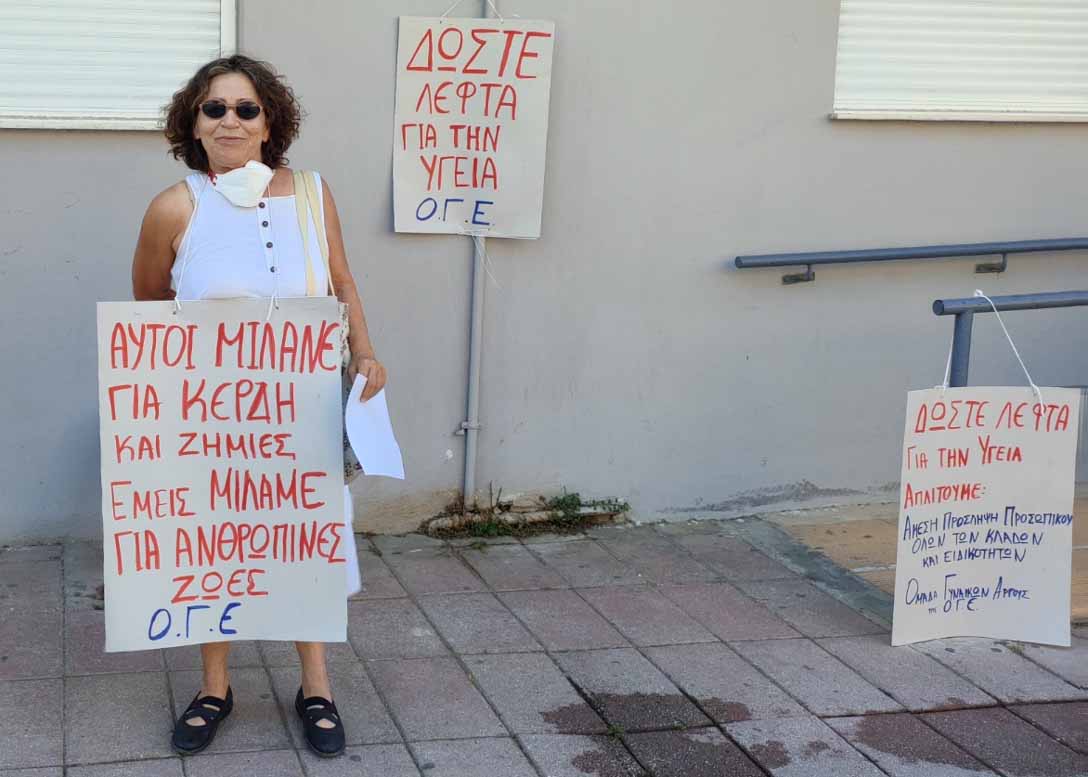 ΑΥΤΟΙ ΜΙΛΑΝΕ
ΓΙΑ ΚΕΡΔΗ
ΚΑΙ ΖΗΜΙΕΣ
ΕΜΕΙΣ ΜΙΛΑΜΕ
ΓΙΑ ΑΝΘΡΩΠΙΝΕΣ
ΖΩΕΣ
Ο.Γ.Ε
ΔΩΣΤΕ
ΛΕΦΤΑ
ΓΙΑ ΤΗΝ
ΥΓΕΙΑ
Ο.Γ.Ε.
ΔΩΣΤΕ ΛΕΦΤΑ
ΓΙΑ ΤΗΝ ΥΓΕΙΑ
ΑΠΑΙΤΟΥΜΕ:
ΑΜΕΣΗ ΠΡΟΣΛΗΨΗ ΠΡΟΣΩΠΙΚΟΥ
ΟΛΩΝ ΤΩΝ ΚΛΑΔΩΝ
ΚΑΙ ΕΙΔΙΚΟΤΗΤΩΝ
ΟΜΑΔΑ ΓΥΝΑΙΚΩΝ ΑΡΓΟΥΣ
της Ο.Γ.Ε.